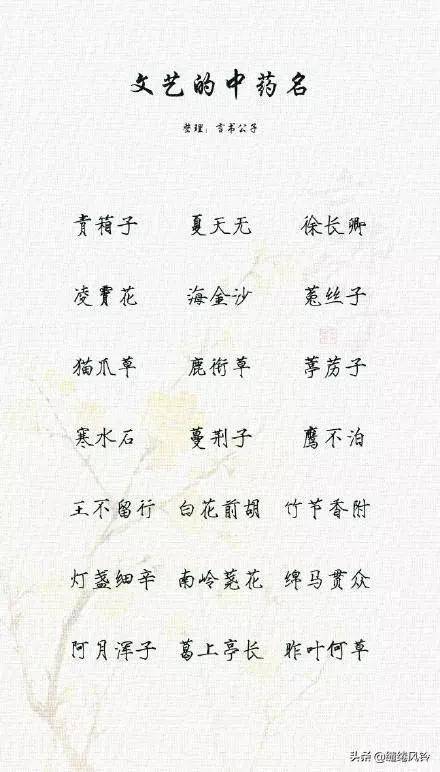 文艺的中药名
整理：言书公子
青箱子 夏天无 徐长卿
凌霄花 海金沙 菟丝子
猫爪草 鹿衔草 葶苈子
寒水石 蔓荆子 鹰不泊
王不留行 白花前胡 竹节香附
灯盏细辛 南岭荛花 绵马贯众
阿月浑子 葛上亭长 昨叶何草
头条@缱绻风铃